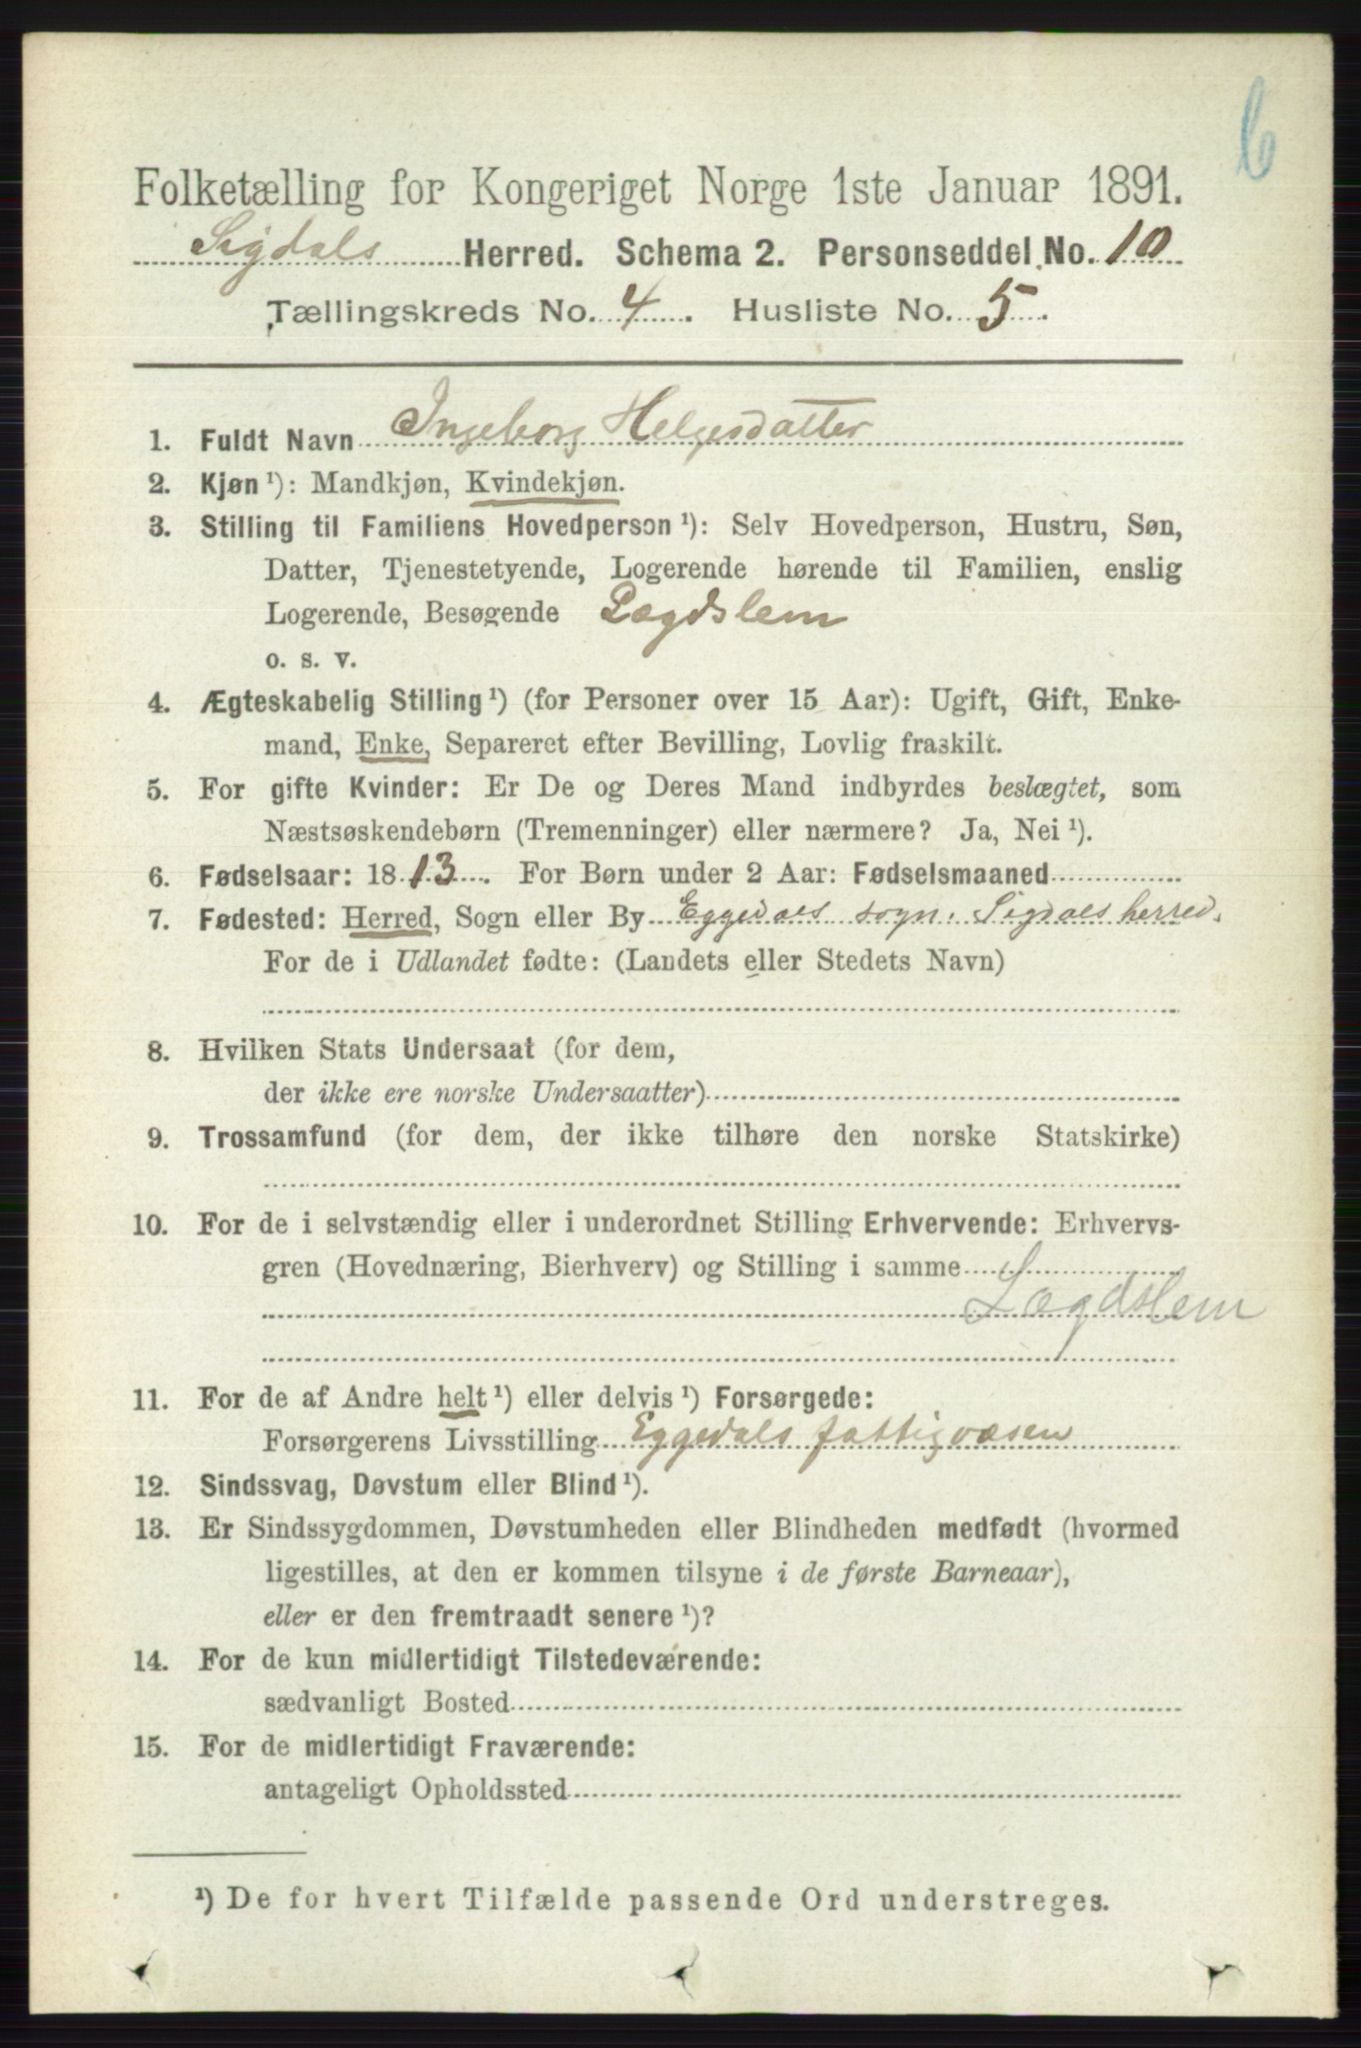 6
Folketælling for Kongeriget Norge 1ste Januar 1891.
Sigdals Herred. Schema 2. Personseddel No. 10
Tællingskreds No. 4. Husliste No. 5.
1. Fuldt Navn Ingeborg Helgesdatter
2. Kjøn ¹): Mandkjøn, Kvindekjøn.
3. Stilling til Familiens Hovedperson ¹): Selv Hovedperson, Hustru, Søn,
Datter, Tjenestetyende, Logerende hørende til Familien, enslig
Logerende, Besøgende Lægdslem
o. s. v.
4. Ægteskabelig Stilling ¹) (for Personer over 15 Aar): Ugift, Gift, Enke-
mand, Enke, Separeret efter Bevilling, Lovlig fraskilt.
5. For gifte Kvinder: Er De og Deres Mand indbyrdes beslægtet, som
Næstsøskendebørn (Tremenninger) eller nærmere? Ja, Nei ¹).
6. Fødselsaar: 1813. For Børn under 2 Aar: Fødselsmaaned
7. Fødested: Herred, Sogn eller By Eggedals sogn. Sigdals herred.
For de i Udlandet fødte: (Landets eller Stedets Navn)
8. Hvilken Stats Undersaat (for dem,
der ikke ere norske Undersaatter)
9. Trossamfund (for dem, der ikke tilhøre den norske Statskirke)
10. For de i selvstændig eller i underordnet Stilling Erhvervende: Erhvervs-
gren (Hovednæring, Bierhverv) og Stilling i samme
Lægdslem
11. For de af Andre helt ¹) eller delvis ¹) Forsørgede:
Forsørgerens Livsstilling Eggedals fattigvæsen
12. Sindssvag, Døvstum eller Blind ¹).
13. Er Sindssygdommen, Døvstumheden eller Blindheden medfødt (hvormed
ligestilles, at den er kommen tilsyne i de første Barneaar),
eller er den fremtraadt senere ¹)?
14. For de kun midlertidigt Tilstedeværende:
sædvanligt Bosted
15. For de midlertidigt Fraværende:
antageligt Opholdssted
¹) De for hvert Tilfælde passende Ord understreges.